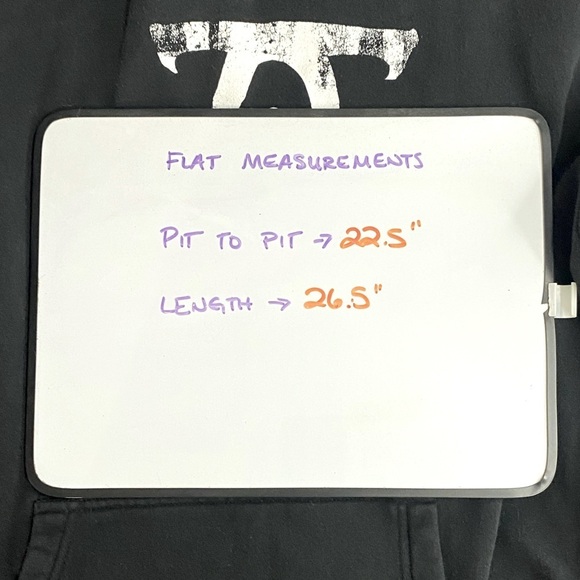 FLAT MEASUREMENTS
PIT TO PIT → 22.5"
LENGTH → 26.5"